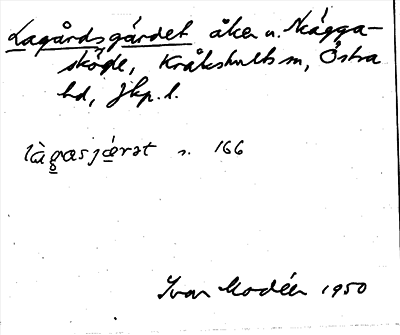 Lagårdsgärdet åker u. Skägga-
sköde, Kråkshults sn, Östra
hd, Jkp. l.
làgasjærət s. 166
Ivar Modéer 1950